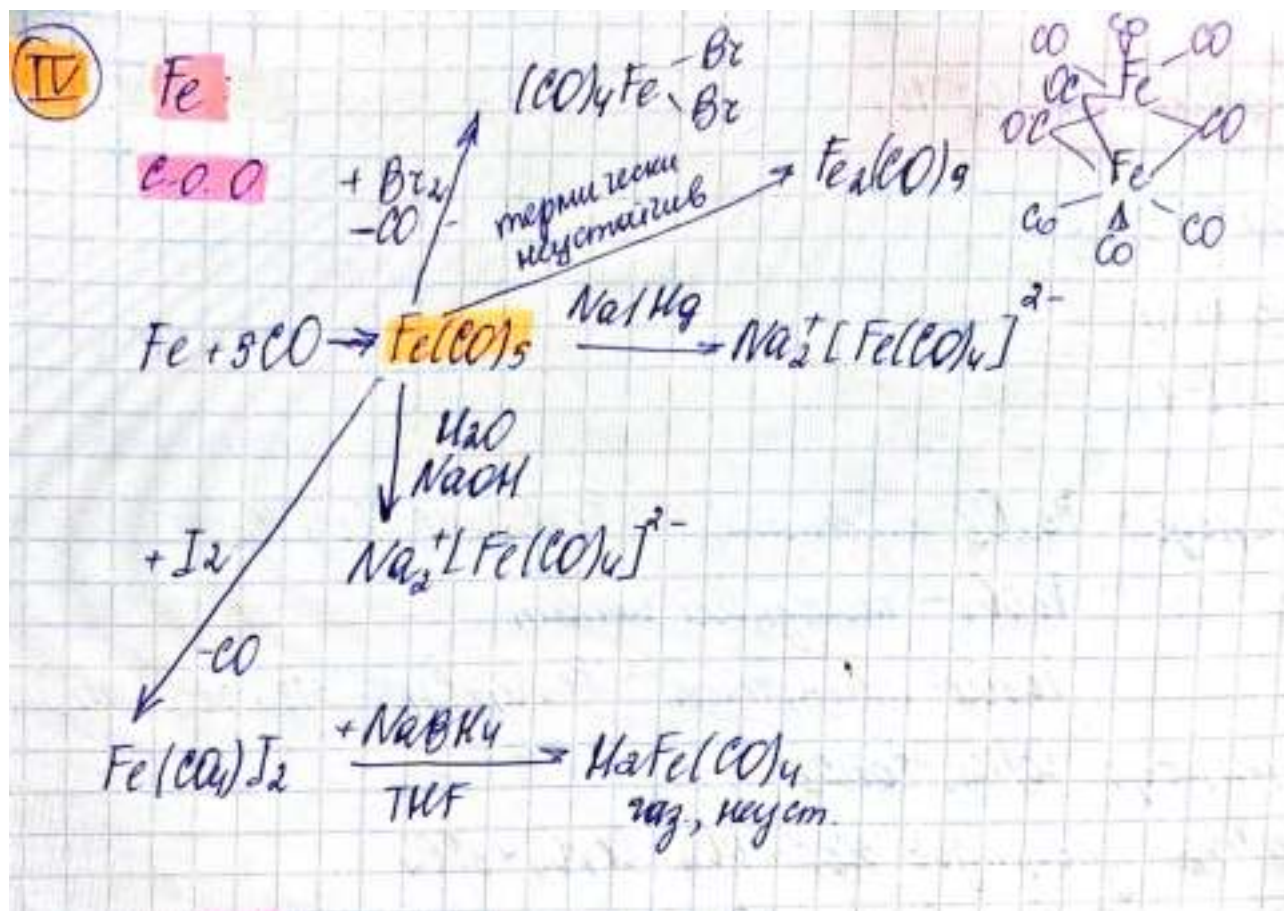 IV
Fe
C.O. O
(CO)₄Fe Br
Br
+ Br₂
-CO
термически
неустойчив
Fe₂(CO)₉
CO CO CO
OC Fe
OC CO
Fe
CO CO CO
Fe + 5CO → Fe(CO)₅
Na/Hg
Na₂⁺[Fe(CO)₄]²⁻
H₂O
NaOH
Na₂⁺[Fe(CO)₄]²⁻
+ I₂
-CO
Fe(CO₄)I₂
+ NaBH₄
THF
H₂Fe(CO)₄
газ., неуст.